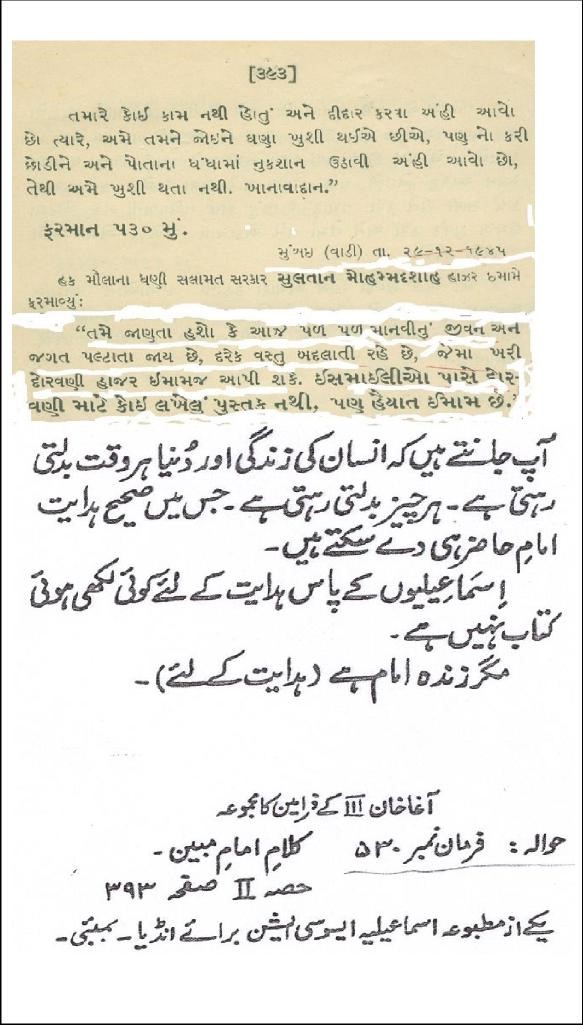 [૩૯૩]
તમારે કોઈ કામ નથી હોતું અને દીદાર કરવા અંહી આવો
છો ત્યારે, અમે તમને જોઇને ઘણા ખુશી થઈએ છીએ, પણ નો કરી
છોડીને અને પોતાના ધંધામાં નુકશાન ઉઠાવી અંહી આવો છો,
તેથી અમે ખુશી થતા નથી. ખાનાવાદાન.”
ફરમાન ૫૩૦ મું.
મુંબઇ (વાડી) તા. ૨૯-૧૨-૧૯૪૫
હક મૌલાના ધણી સલામત સરકાર સુલતાન મોહમ્મદશાહ હાઝર ઇમામે
ફરમાવ્યું:
“તમે જાણતા હશો કે આજ પળ પળ માનવીનું જીવન અને
જગત પલ્ટાતા જાય છે, દરેક વસ્તુ બદલાતી રહે છે, જેમાં ખરી
દોરવણી હાજર ઇમામજ આપી શકે. ઇસમાઇલીઓ પાસે દોર-
વણી માટે કોઇ લખેલું પુસ્તક નથી, પણ હૈયાત ઈમામ છે.
آپ جانتے ہیں کہ انسان کی زندگی اور دُنیا ہر وقت بدلتی
رہتی ہے۔ ہر چیز بدلتی رہتی ہے۔ جس میں صحیح ہدایت
امامِ حاضر ہی دے سکتے ہیں۔
اِسمَاعیلیوں کے پاس ہدایت کے لئے کوئی لکھی ہوئی
کتاب نہیں ہے۔
مگر زندہ امام ہے (ہدایت کے لئے)۔
آغاخان III کے فرامین کا مجموعہ
حوالہ: فرمان نمبر ۵۳۰ کلامِ امامِ مبین۔
حصہ II صفحہ ۳۹۳
یکے از مطبوعہ اسماعیلیہ ایسوسی ایشن برائے انڈیا۔ بمبئی۔